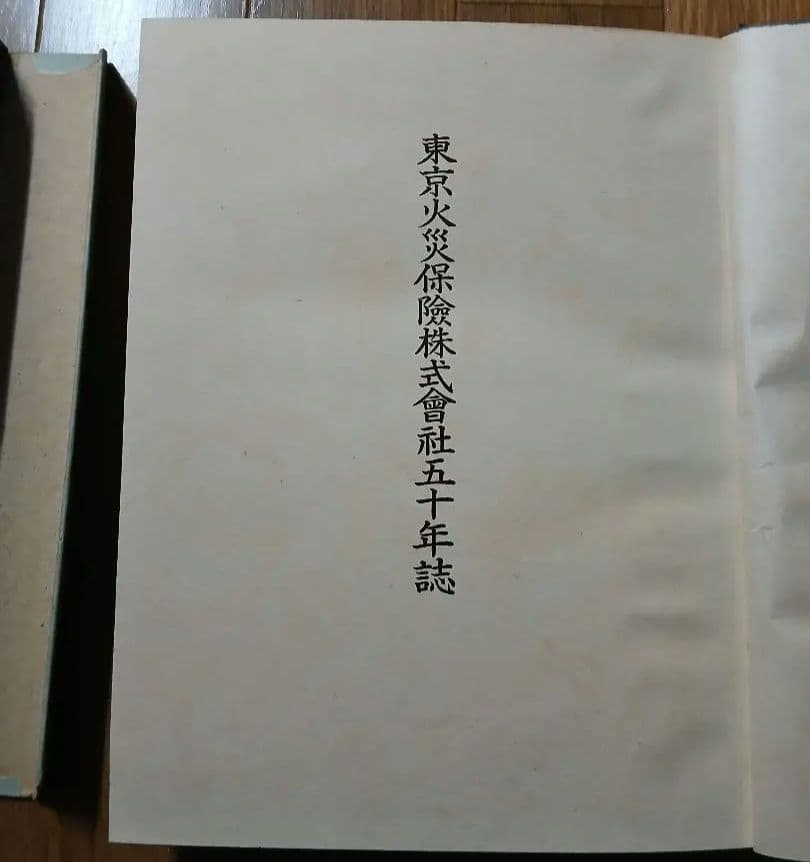 東京火災保險株式會社五十年誌